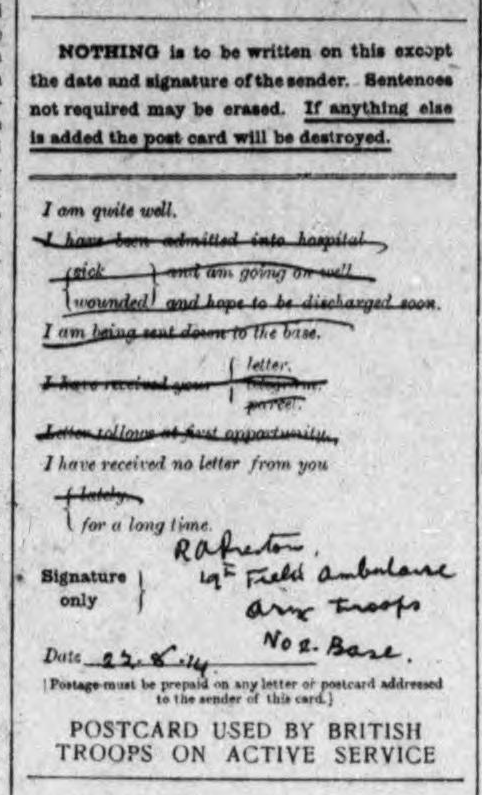 NOTHING is to be written on this except
the date and signature of the sender. Sentences
not required may be erased. If anything else
is added the post card will be destroyed.
I am quite well.
I have been admitted into hospital
{sick } and am going on well
{wounded} and hope to be discharged soon.
I am being sent down to the base.
I have received your { letter.
telegram.
parcel.
Letter follows at first opportunity.
I have received no letter from you
{ lately.
{ for a long time.
Signature only }
R A Preston.
19th Field Ambulance
Army Troops
No 2. Base.
Date 22.8.14
[Postage must be prepaid on any letter or postcard addressed
to the sender of this card.]
POSTCARD USED BY BRITISH
TROOPS ON ACTIVE SERVICE